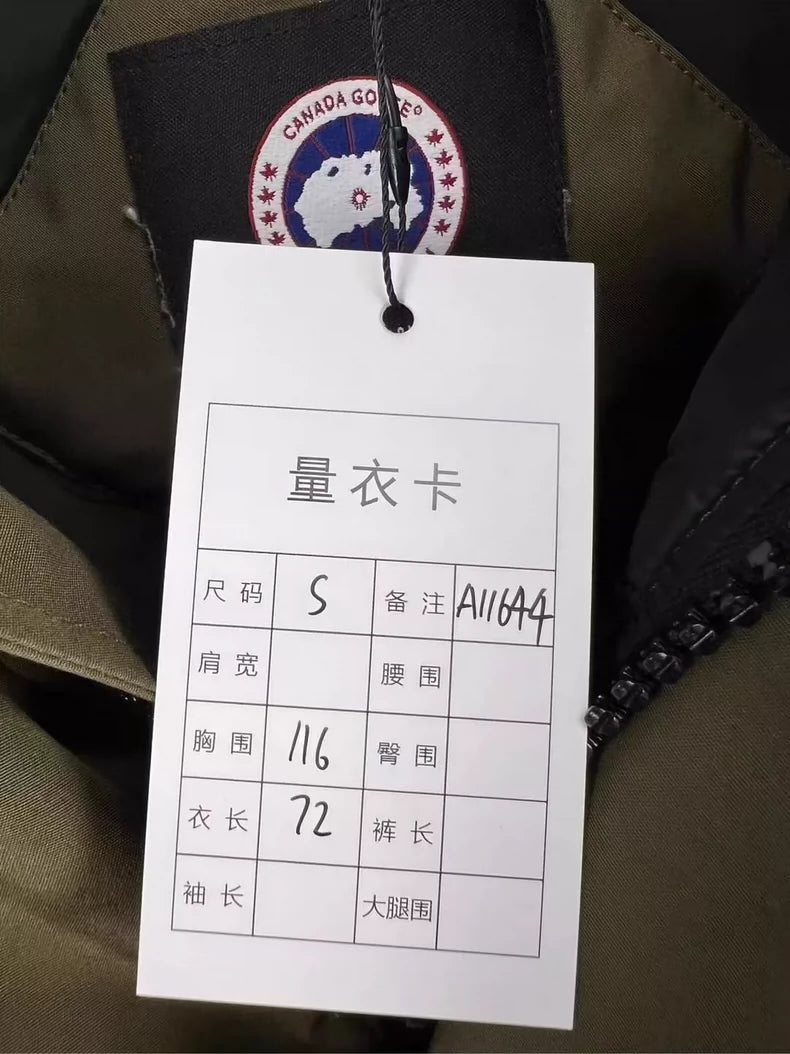 CANADA GOOSE®
量衣卡
尺码 S 备注 A11644
肩宽 腰围
胸围 116 臀围
衣长 72 裤长
袖长 大腿围